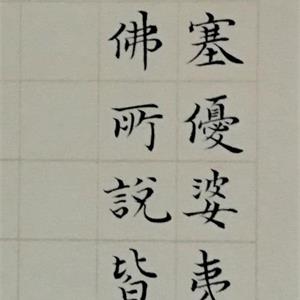 塞優婆夷
佛所說皆